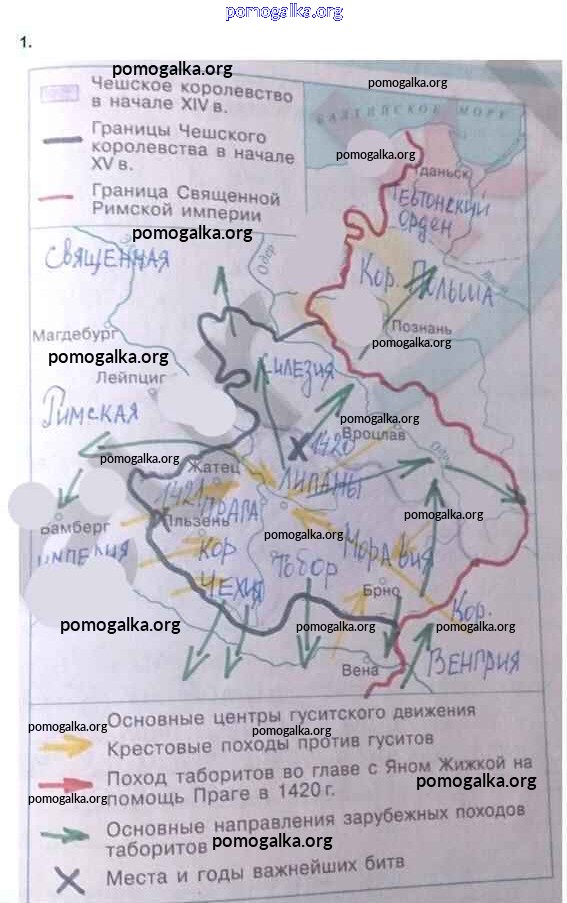 pomogalka.org
1.
pomogalka.org
Чешское королевство
в начале XIV в.
pomogalka.org
БАЛТИЙСКОЕ МОРЕ
Границы Чешского
королевства в начале
XV в.
pomogalka.org
Граница Священной
Римской империи
Гданьск
ТЕВТОНСКИЙ
ОРДЕН
pomogalka.org
СВЯЩЕННАЯ
Одер
Кор. Польша
Магдебург
Познань
pomogalka.org
pomogalka.org
Лейпциг
СИЛЕЗИЯ
РИМСКАЯ
pomogalka.org
1420
Вроцлав
pomogalka.org
Жатец
ЛИПАНЫ
1421
ПРАГА
Бамберг
Пльзень
pomogalka.org
pomogalka.org
ИМПЕРИЯ
КОР
ЧЕХИЯ
Тобор
МОРАВИЯ
Брно
Кор.
ВЕНГРИЯ
pomogalka.org
pomogalka.org
pomogalka.org
Вена
Основные центры гуситского движения
pomogalka.org
pomogalka.org
Крестовые походы против гуситов
Поход таборитов во главе с Яном Жижкой на
помощь Праге в 1420 г.
pomogalka.org
pomogalka.org
Основные направления зарубежных походов
таборитов
pomogalka.org
Места и годы важнейших битв